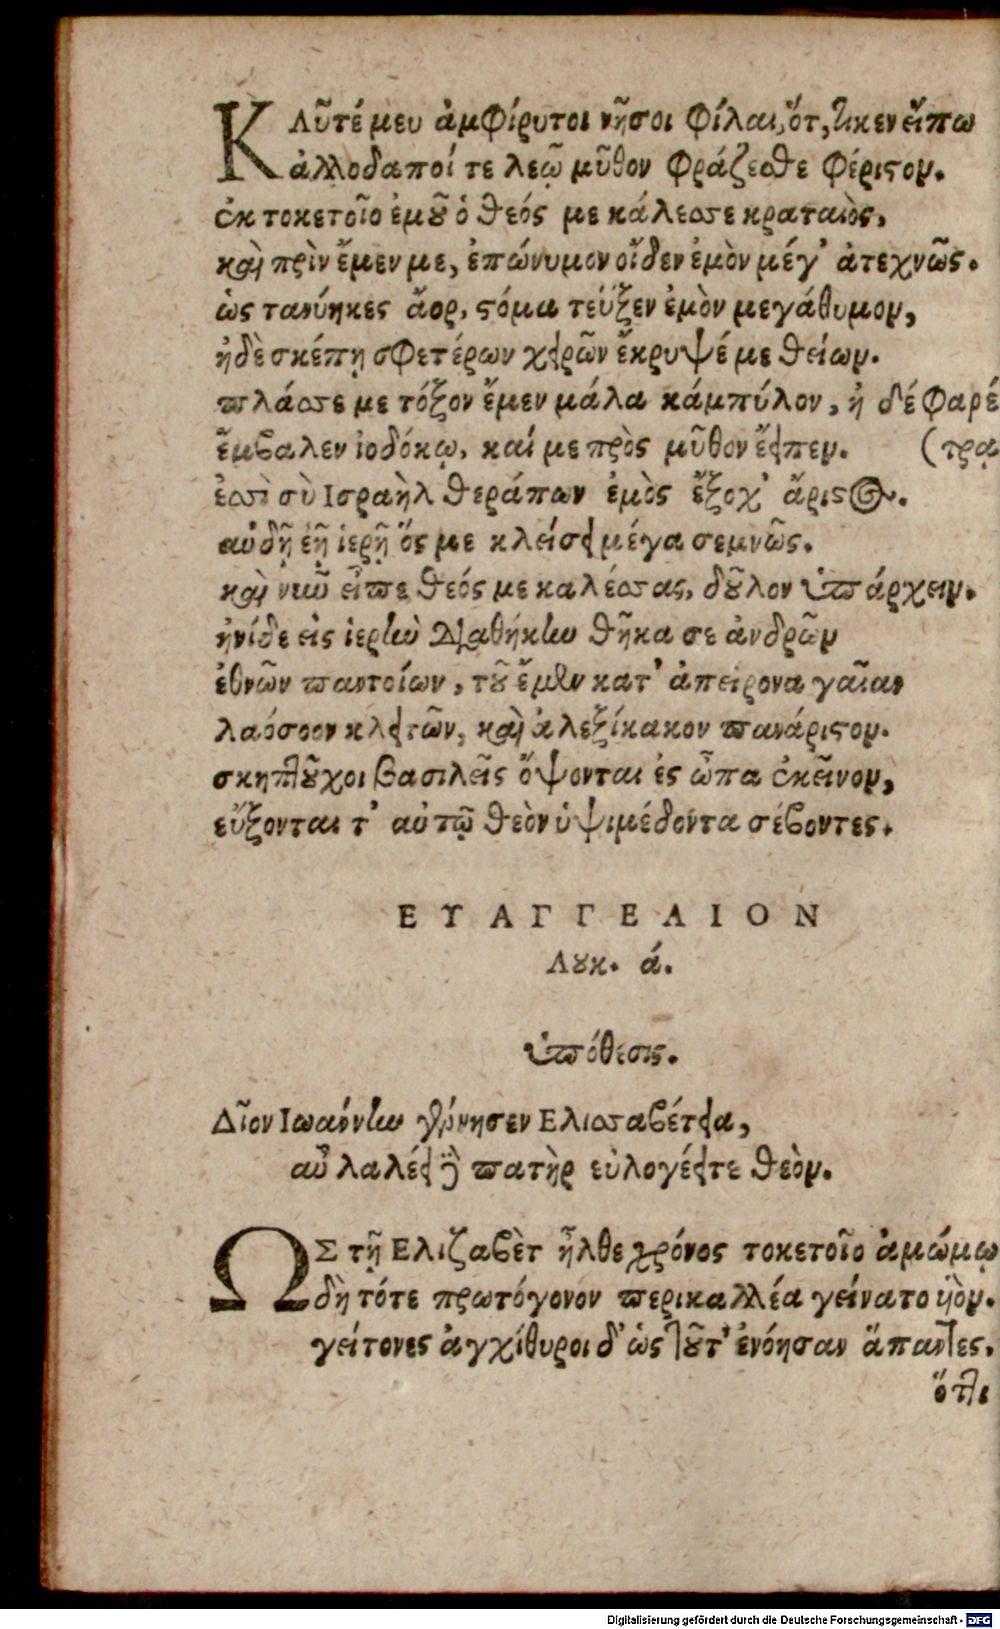 ΚΛῦτέ μευ ἀμφίρυτοι νῆσοι φίλαι, ὅτ,τι κεν εἴπω
ἀλλοδαποί τε λεῷ μῦθον φράζεσθε φέριστον.
ἐκ τοκετοῖο ἐμοῦ ὁ θεός με κάλεσσε κραταιὸς,
καὶ πρὶν ἔμεν με, ἐπώνυμον οἶδεν ἐμὸν μέγ' ἀτεχνῶς.
ὡς τανύηκες ἄορ, στόμα τεῦξεν ἐμὸν μεγάθυμον,
ἠδὲ σκέπῃ σφετέρων χειρῶν ἔκρυψέ με θείων.
πλάσσε με τόξον ἔμεν μάλα κάμπύλον, ἠ δέ φαρέ
ἔμβαλεν ἰοδόκῳ, καί με πρὸς μῦθον ἔειπεν. (τρᾳ
ἐσσὶ σὺ Ισραὴλ θεράπων ἐμὸς ἔξοχ' ἄριστος.
αὐδῇ ἑῇ ἱερῇ ὅς με κλείσει μέγα σεμνῶς.
καὶ νῦν εἶπε θεός με καλέσσας, δοῦλον ὑπάρχειν.
ἠνίδε εἰς ἱερὴν διαθήκην θῆκα σε ἀνδρῶν
ἐθνῶν παντοίων, τοῦ ἔμεν κατ' ἀπείρονα γαῖαν
λαόσσον κλειτῶν, καὶ ἀλεξίκακον πανάριστον.
σκηπτοῦχοι βασιλεῖς ὄψονται ἐς ὦπα ἐκεῖνον,
εὔξονται τ' αὐτῷ θεὸν ὑψιμέδοντα σέβοντες.
ΕΥΑΓΓΕΛΙΟΝ
Λουκ. ά.
ὑπόθεσις.
Δῖον Ιωαννην γέννησεν Ελισσαβέτεια,
αὖ λαλέει ὃ πατὴρ εὐλογέειτε θεὸν.
ΩΣ τῇ Ελιζαβὲτ ἦλθε χρόνος τοκετοῖο ἀμώμῳ
δὴ τότε πρωτόγονον περικαλλέα γείνατο υἱὸν.
γείτονες ἀγχίθυροι δ' ὡς τοῦτ' ἐνόησαν ἅπαντες.
ὅττι
Digitalisierung gefördert durch die Deutsche Forschungsgemeinschaft - DFG